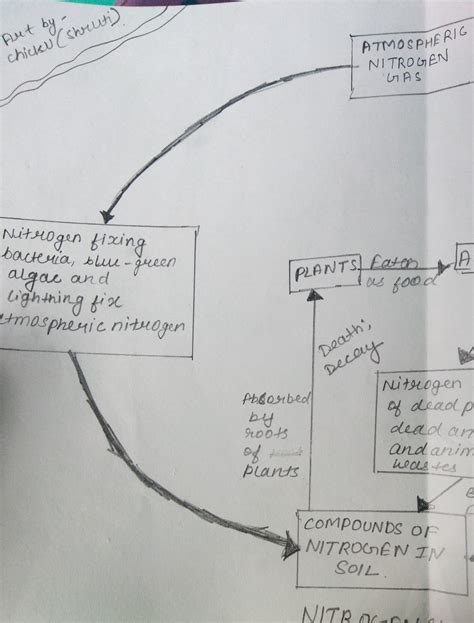 Art by -
chicku (shruti).
ATMOSPHERIC
NITROGEN
GAS
Nitrogen fixing
bacteria, blue-green
algae and
lightning fix
atmospheric nitrogen
PLANTS
Eaten
as food
A
Death;
Decay
Nitrogen
of dead p
dead an
and anim
wastes
Absorbed
by
roots
of
plants
COMPOUNDS OF
NITROGEN IN
SOIL.